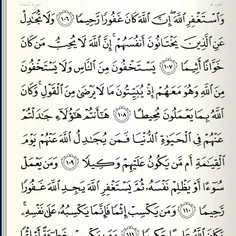 وَٱسْتَغْفِرِ ٱللَّهَ إِنَّ ٱللَّهَ كَانَ غَفُورًا رَّحِيمًا ١٠٦ وَلَا تُجَٰدِلْ
عَنِ ٱلَّذِينَ يَخْتَانُونَ أَنفُسَهُمْ إِنَّ ٱللَّهَ لَا يُحِبُّ مَن كَانَ
خَوَّانًا أَثِيمًا ١٠٧ يَسْتَخْفُونَ مِنَ ٱلنَّاسِ وَلَا يَسْتَخْفُونَ
مِنَ ٱللَّهِ وَهُوَ مَعَهُمْ إِذْ يُبَيِّتُونَ مَا لَا يَرْضَىٰ مِنَ ٱلْقَوْلِ وَكَانَ
ٱللَّهُ بِمَا يَعْمَلُونَ مُحِيطًا ١٠٨ هَٰٓأَنتُمْ هَٰٓؤُلَآءِ جَٰدَلْتُمْ
عَنْهُمْ فِى ٱلْحَيَوٰةِ ٱلدُّنْيَا فَمَن يُجَٰدِلُ ٱللَّهَ عَنْهُمْ يَوْمَ
ٱلْقِيَٰمَةِ أَم مَّن يَكُونُ عَلَيْهِمْ وَكِيلًا ١٠٩ وَمَن يَعْمَلْ
سُوٓءًا أَوْ يَظْلِمْ نَفْسَهُۥ ثُمَّ يَسْتَغْفِرِ ٱللَّهَ يَجِدِ ٱللَّهَ غَفُورًا
رَّحِيمًا ١١٠ وَمَن يَكْسِبْ إِثْمًا فَإِنَّمَا يَكْسِبُهُۥ عَلَىٰ نَفْسِهِۦ